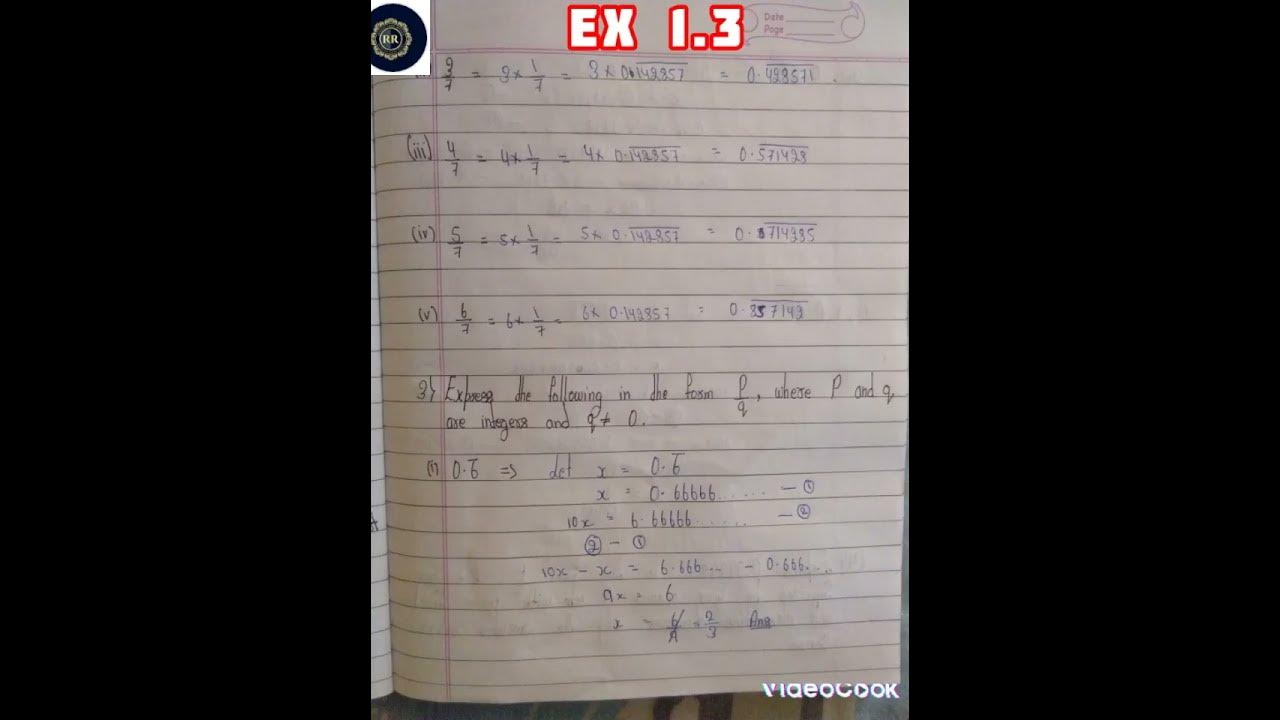 RR
EX 1.3
Date
Page
3/7 = 3 × 1/7 = 3 × 0.1̅4̅2̅8̅5̅7̅ = 0.4̅2̅8̅5̅7̅1̅ .
(iii) 4/7 = 4 × 1/7 = 4 × 0.1̅4̅2̅8̅5̅7̅ = 0.5̅7̅1̅4̅2̅8̅
(iv) 5/7 = 5 × 1/7 = 5 × 0.1̅4̅2̅8̅5̅7̅ = 0.7̅1̅4̅2̅8̅5̅
(v) 6/7 = 6 × 1/7 = 6 × 0.142857 = 0.8̅5̅7̅1̅4̅2̅
3} Express the following in the form P/q, where P and q
are integers and q ≠ 0.
(i) 0.6̅ => Let x = 0.6̅
x = 0.66666...... — ①
10x = 6.66666....... — ②
② - ①
10x - x = 6.666... - 0.666....
9x = 6
x = 6/9 = 2/3 Ans
VIDEOCOOK